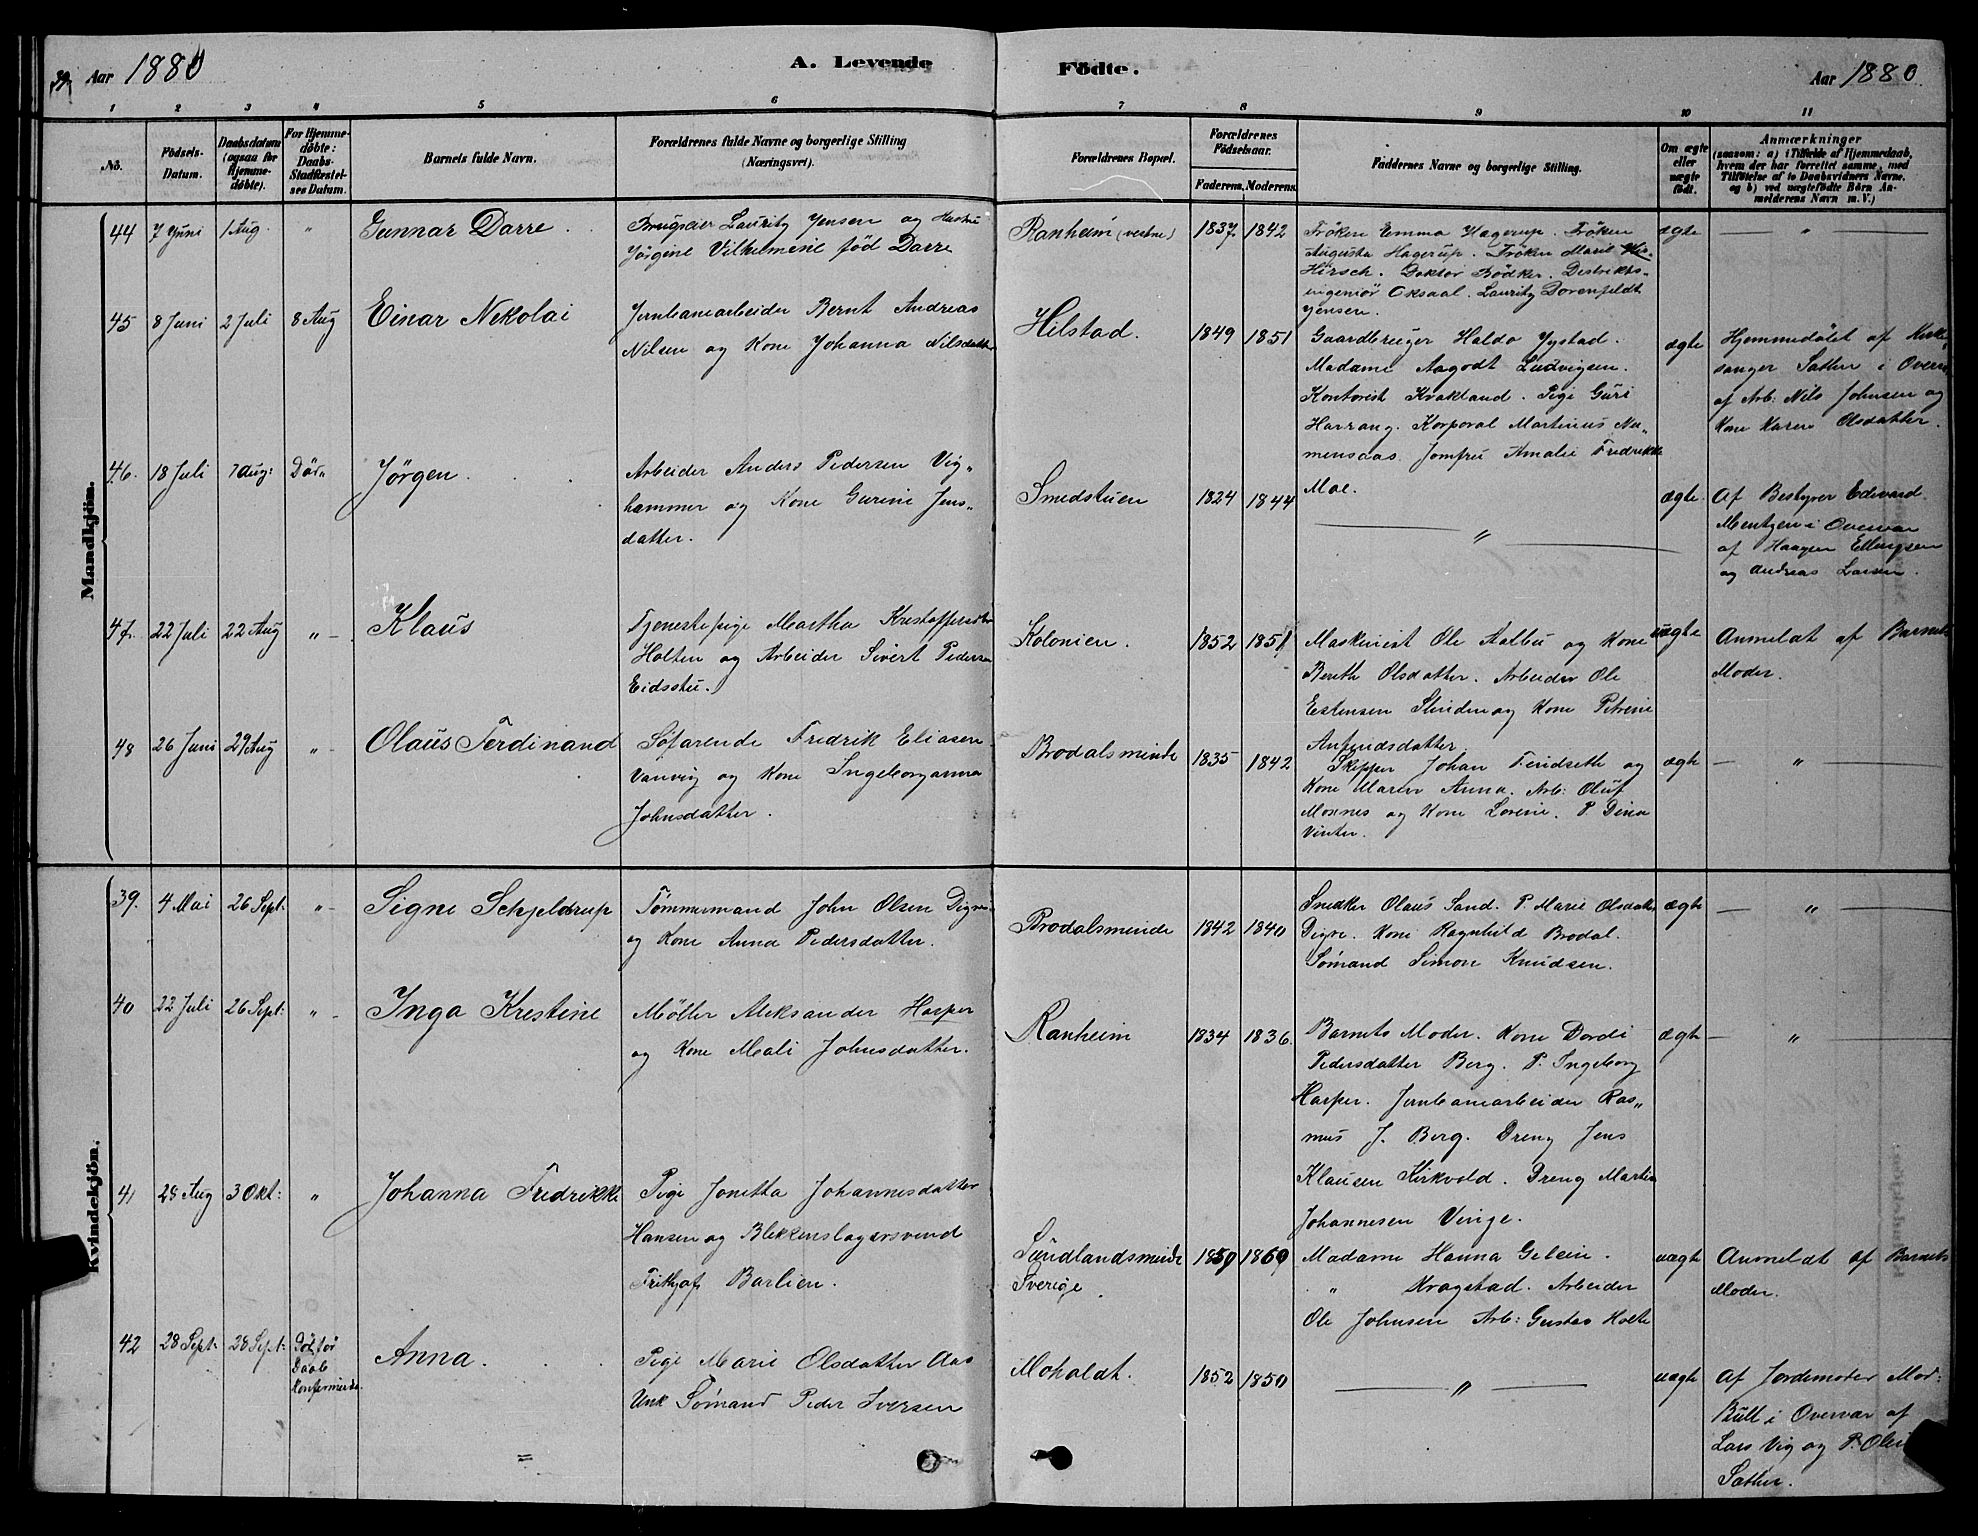 39. Aar 1880 A. Levende Födte. Aar 1880
1 2 3 4 5 6 7 8 9 10 11
Nö.
Födsels-Datum.
Daabsdatum (ogsaa for Hjemme-döbte).
For Hjemme-döbte: Daabs-Stadfæstel-ses Datum.
Barnets fulde Navn.
Forældrenes fulde Navne og borgerlige Stilling (Næringsvei).
Forældrenes Bopæl.
Forældrenes Födselsaar.
Faderens. Moderens.
Faddernes Navne og borgerlige Stilling.
Om ægte eller uægte födt.
Anmærkninger
(saasom: a) i Tilfælde af Hjemmedaab, hvem der har forrettet samme, med Tilföielse af to Daabsvidners Navne, og b) ved uægtefödte Börn An-melderens Navn m. V.)
Mandkjön.
44 7 Juni 1 Aug. " Gunnar Darre
Brugseier Lauritz Jensen og Hustru
Jörgine Vilhelmine föd Darre
Ranheim (vestre) 1837 1842
Fröken Emma Hagerup. Fröken
Augusta Hagerup. Fröken Marie
Hirsch. Doktor Bödker. Distrikts-
ingeniör Oksaal. Lauritz Dorenfeldt
Jensen.
ægte — " —
45 8 Juni 2 Juli 8 Aug Einar Nikolai
Jernbanearbeider Bernt Andreas
Nilsen og Kone Johanna Nilsdatter
Helstad. 1849 1851
Gaardbruger Haldo Ystad.
Madame Aagodt Ludvigsen.
Kontorist Kvakland. Pige Guri
Harrang. Korporal Martinus Nu„
mensaas. Jomfru Amalie Fredrikke
Moe.
ægte
Hjemmedöbt af Kirke-
sanger Sather i Overv.
af Arb: Nils Johnsen og
Kone Karen Olsdatter.
46. 18 Juli 7 Aug: Död„ Jörgen.
Arbeider Anders Pedersen Vig„
hammer og Kone Gurine Jens„
datter.
Smedstuen 1824 1844
— " —
ægte.
Af Bestyrer Edevard
Mentzen i Overvær
af Haagen Ellingsen
og Andreas Larsen.
47. 22 Juli 22 Aug " Klaus
Tjenestepige Martha Kristoffersdtr
Holten og Arbeider Sivert Pedersen
Eidsstu.
Kolonien. 1852 1851
Maskinist Ole Aalbu og Kone
Berith Olsdatter. Arbeider Ole
Estensen Slinden og Kone Petrine
Anfindsdatter.
uægte
Anmeldt af Barnets
Moder.
48 26 Juni 29 Aug " Olaus Ferdinand
Söfarende Fredrik Eliasen
Vanvig og Kone Ingeborganna
Johnsdatter.
Brodalsminde 1835 1842
Skipper Johan Ferdseth og
Kone Maren Anna. Arb: Oluf
Mosnes og Kone Lovine. P. Dina
Vinter.
ægte — " —
Kvindekjön.
39. 4 Mai 26 Sept: " Signe Schjelderup
Tömmermand John Olsen Digre
og Kone Anna Pedersdatter.
Brodalsminde 1842 1840
Snedker Olaus Sand. P. Marie Olsdatter
Digre. Kone Ragnhild Brodal.
Sömand Simon Knudsen.
ægte — " —
40 22 Juli 26 Sept: " Inga Kristine
Möller Aleksander Harper
og Kone Mali Johnsdatter.
Ranheim 1834 1836.
Barnets Moder. Kone Dordi
Pedersdatter Berg. P. Ingeborg
Harper. Jernbanearbeider Ras„
mus J. Berg. Dreng Jens
Klausen Kirkvold. Dreng Martin
Johannesen Vinge.
ægte — " —
41 28 Aug 3 Okt: " Johanna Fredrikke
Pige Jonetta Johannesdatter
Hansen og Blekkenslagersvend
Frithjof Barlien.
Sundlandsminde 1859 1860
Sverige.
Madame Hanna Gelein.
" Kragstad. Arbeider
Ole Johnsen Arb: Gustav Holte
uægte
Anmeldt af Barnets
Moder.
42 28 Sept: 28 Sept: Död för Daab Konfermeede. Anna.
Pige Marie Olsdatter Aas
Unk Sömand Peder Iversen
Moholdt. 1852 1850
— " —
uægte
Af Jordemoder Mad:
Bull i Overvær af
Lars Vig og P. Oline
Sather.